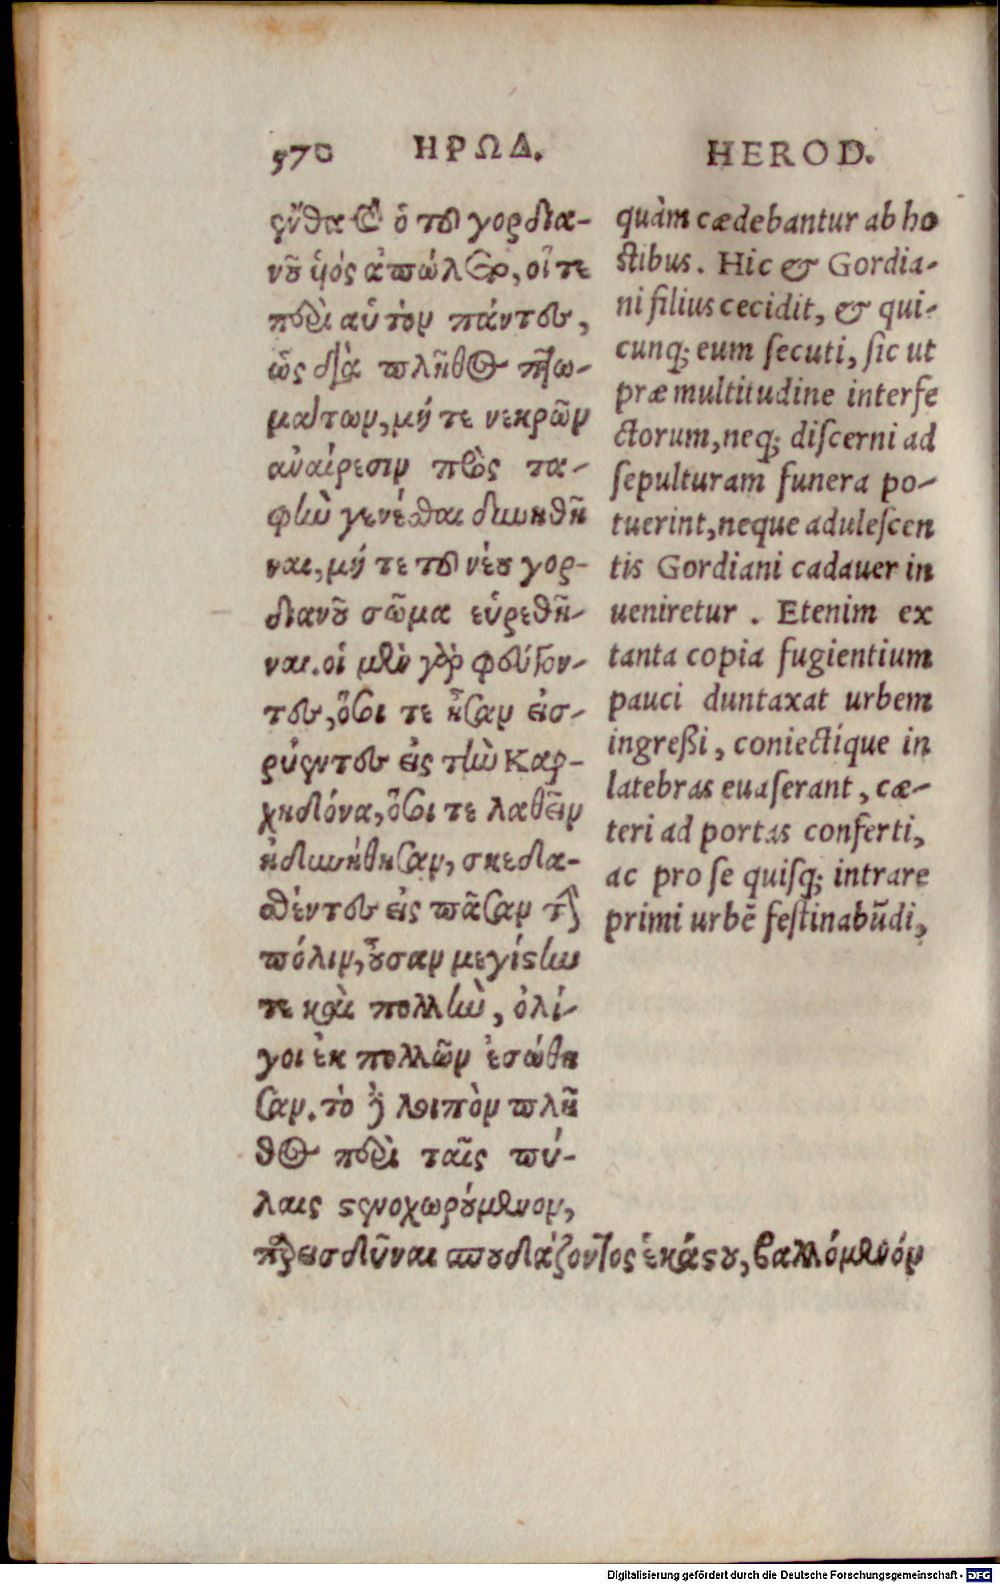 570 ΗΡΩΔ.
ἔνθα καὶ ὁ τοῦ γορδια-
νοῦ υἱός ἀπώλετο, οἵ τε
περὶ αὐτὸν πάντες,
ὡς διὰ πλῆθος πτω-
μάτων, μήτε νεκρῶν
ἀναίρεσιν πρὸς τα-
φὴν γενέσθαι δυνηθῆ
ναι, μήτε τοῦ νέου γορ-
διανοῦ σῶμα εὑρεθῆ-
ναι. οἱ μὲν γὰρ φεύγον-
τες, ὅσοι τε ἦσαν εἰσ-
ρύεντες εἰς τὴν Καρ-
χηδόνα, ὅσοι τε λαθεῖν
ἠδυνήθησαν, σκεδα-
σθέντες εἰς πᾶσαν τὴν
πόλιν, οὖσαν μεγίστην
τε καὶ πολλὴν, ὀλί-
γοι ἐκ πολλῶν ἐσώθη
σαν. τὸ δὲ λοιπὸν πλῆ
θος περὶ ταῖς πύ-
λαις στενοχωρούμενον,
παρεισδῦναι σπουδάζοντος ἑκάστου, βαλλόμενόν
HEROD.
quàm cædebantur ab ho
stibus. Hic & Gordia-
ni filius cecidit, & qui-
cunq; eum secuti, sic ut
præ multitudine interfe
ctorum, neq; discerni ad
sepulturam funera po-
tuerint, neque adulescen
tis Gordiani cadauer in
ueniretur. Etenim ex
tanta copia fugientium
pauci duntaxat urbem
ingreßi, coniectíque in
latebras euaserant, cæ-
teri ad portas conferti,
ac pro se quisq; intrare
primi urbē festinabūdi,
Digitalisierung gefördert durch die Deutsche Forschungsgemeinschaft - DFG